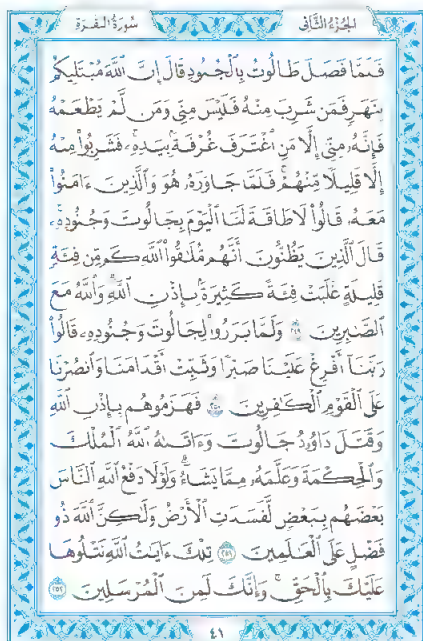 الجزء الثاني
سورة البقرة
فَلَمَّا فَصَلَ طَالُوتُ بِالْجُنُودِ قَالَ إِنَّ اللَّهَ مُبْتَلِيكُم
بِنَهَرٍ فَمَن شَرِبَ مِنْهُ فَلَيْسَ مِنِّي وَمَن لَّمْ يَطْعَمْهُ
فَإِنَّهُ مِنِّي إِلَّا مَنِ اغْتَرَفَ غُرْفَةً بِيَدِهِ فَشَرِبُوا مِنْهُ
إِلَّا قَلِيلًا مِّنْهُمْ فَلَمَّا جَاوَزَهُ هُوَ وَالَّذِينَ ءَامَنُوا
مَعَهُ قَالُوا لَا طَاقَةَ لَنَا الْيَوْمَ بِجَالُوتَ وَجُنُودِهِ
قَالَ الَّذِينَ يَظُنُّونَ أَنَّهُم مُّلَاقُوا اللَّهِ كَم مِّن فِئَةٍ
قَلِيلَةٍ غَلَبَتْ فِئَةً كَثِيرَةً بِإِذْنِ اللَّهِ وَاللَّهُ مَعَ
الصَّابِرِينَ ٢٤٩ وَلَمَّا بَرَزُوا لِجَالُوتَ وَجُنُودِهِ قَالُوا
رَبَّنَا أَفْرِغْ عَلَيْنَا صَبْرًا وَثَبِّتْ أَقْدَامَنَا وَانصُرْنَا
عَلَى الْقَوْمِ الْكَافِرِينَ ٢٥٠ فَهَزَمُوهُم بِإِذْنِ اللَّهِ
وَقَتَلَ دَاوُودُ جَالُوتَ وَءَاتَاهُ اللَّهُ الْمُلْكَ
وَالْحِكْمَةَ وَعَلَّمَهُ مِمَّا يَشَاءُ وَلَوْلَا دَفْعُ اللَّهِ النَّاسَ
بَعْضَهُم بِبَعْضٍ لَّفَسَدَتِ الْأَرْضُ وَلَٰكِنَّ اللَّهَ ذُو
فَضْلٍ عَلَى الْعَالَمِينَ ٢٥١ تِلْكَ ءَايَاتُ اللَّهِ نَتْلُوهَا
عَلَيْكَ بِالْحَقِّ وَإِنَّكَ لَمِنَ الْمُرْسَلِينَ ٢٥٢
٤١